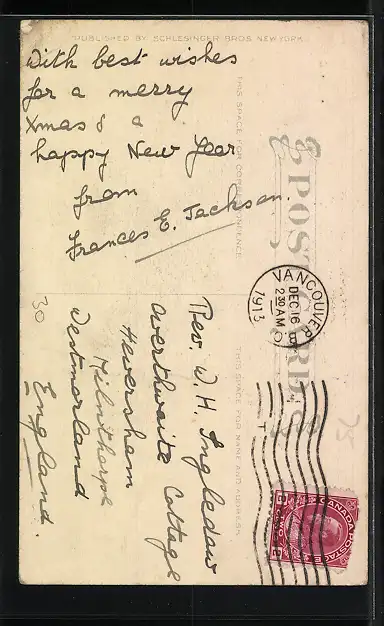 PUBLISHED BY SCHLESINGER BROS. NEW YORK.
With best wishes
for a merry
Xmas & a
happy New Year
from
Frances E. Jackson.
THIS SPACE FOR CORRESPONDENCE
POST CARD
VANCOUVER
B.C.
DEC 16
2 30 AM
1913
THIS SPACE FOR NAME AND ADDRESS.
Rev. W. H. Ingledow
Overthwaite Cottage
Heversham
Milnthorpe
Westmorland
England.
30
75
CANADA POSTAGE
2 CENTS 2